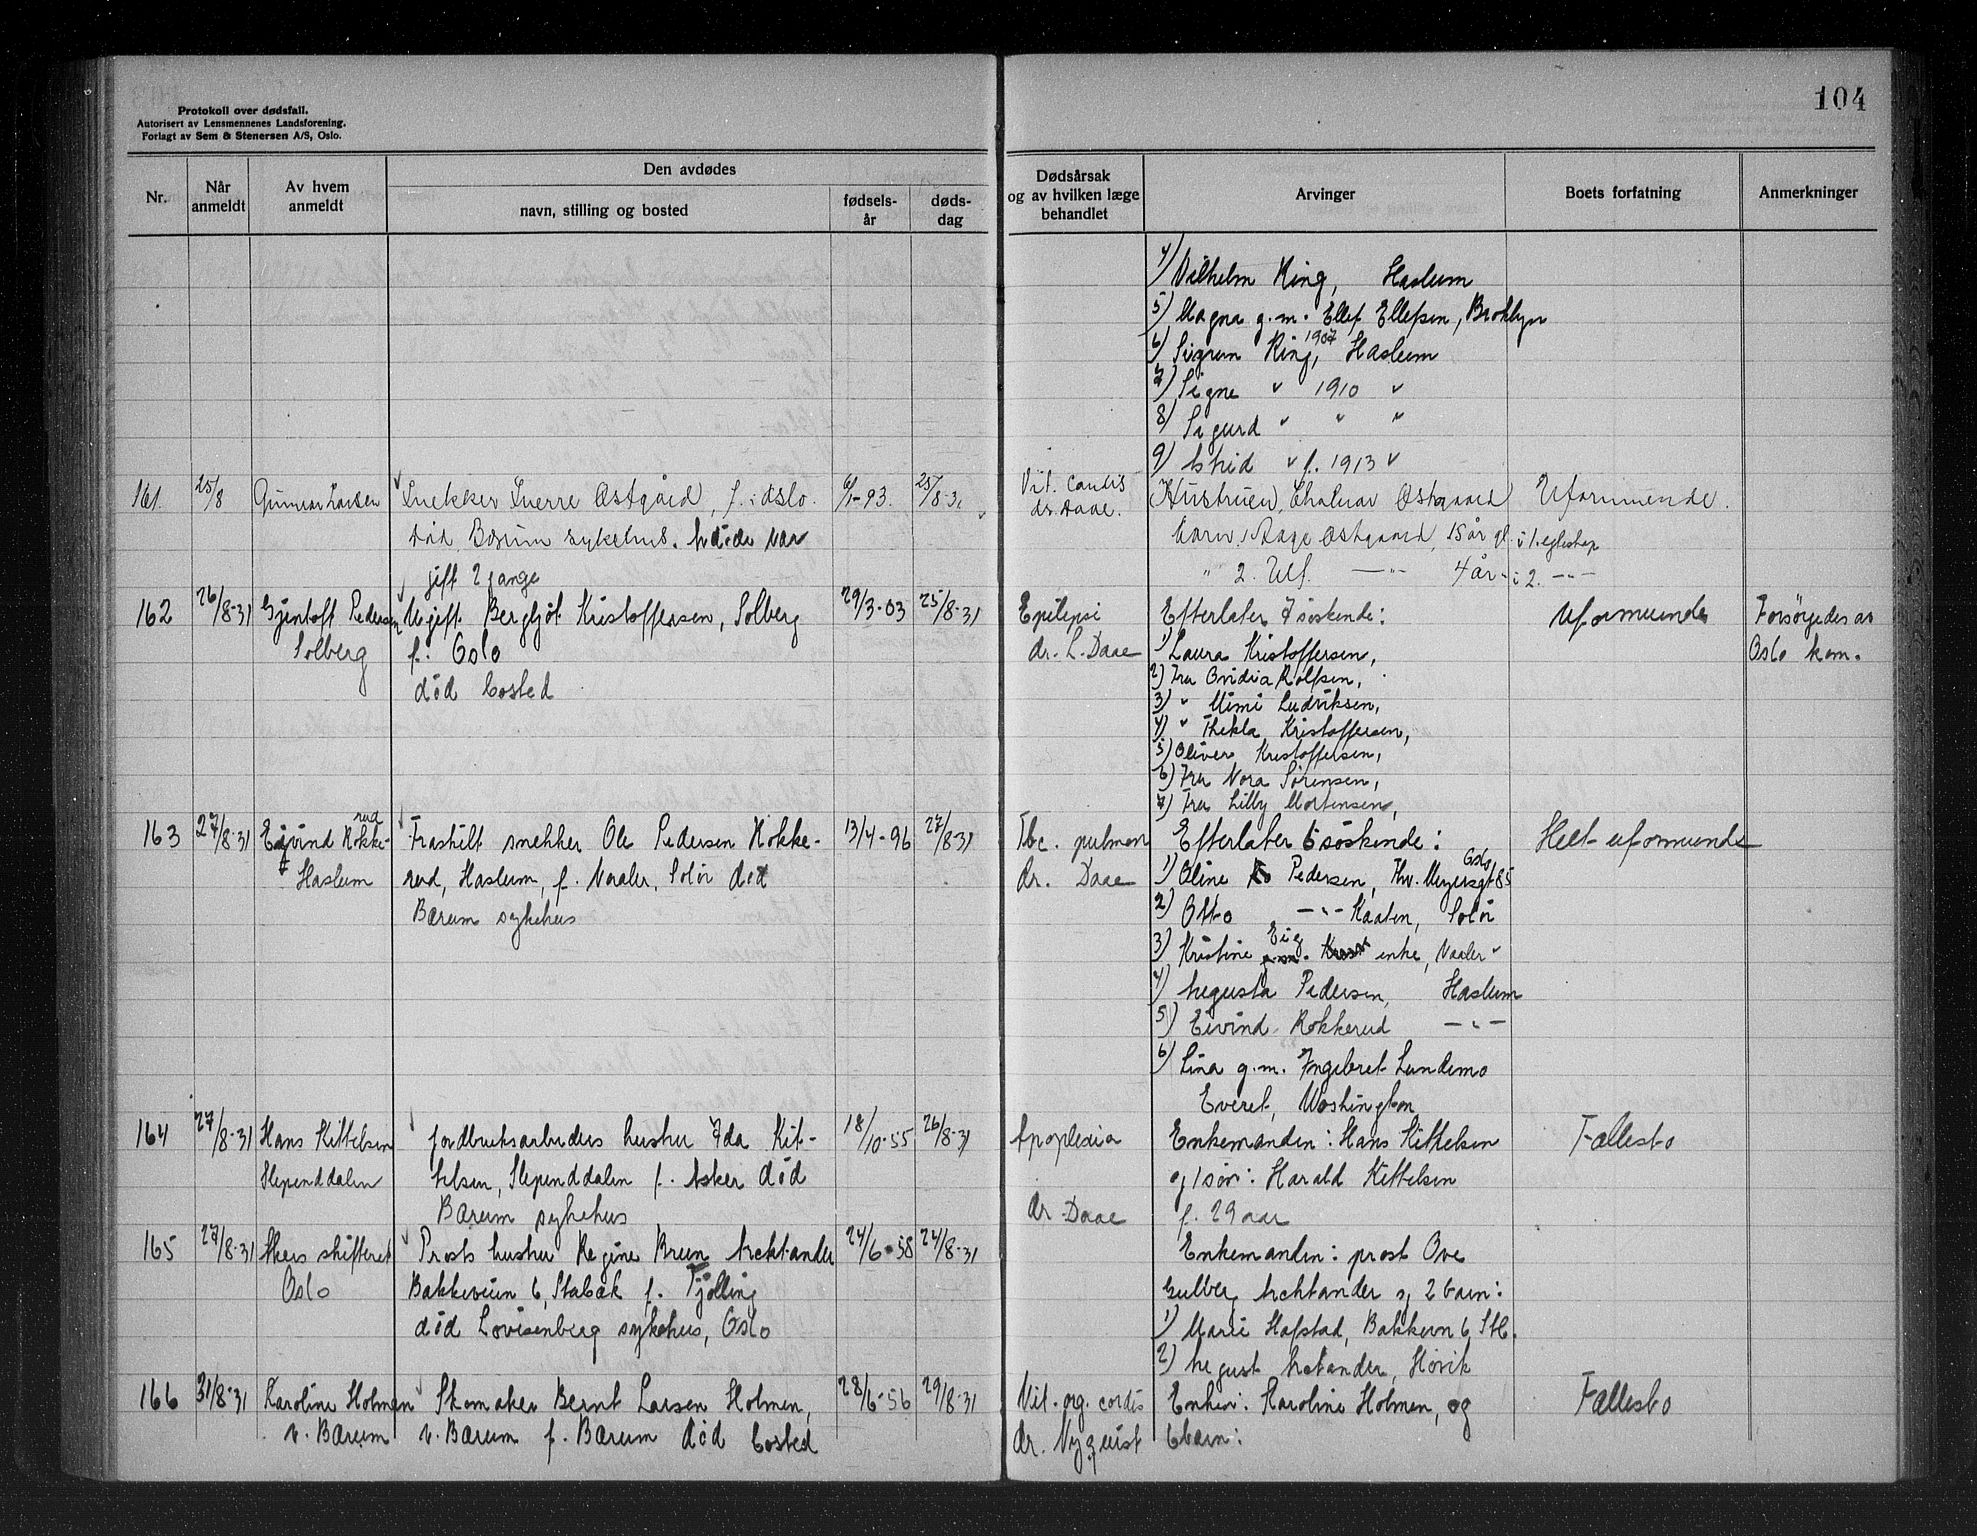 Protokoll over dødsfall.
Autorisert av Lensmennenes Landsforening.
Forlagt av Sem & Stenersen A/S, Oslo.
104
Nr.
Når anmeldt
Av hvem anmeldt
Den avdødes
navn, stilling og bosted
fødselsår
dødsdag
Dødsårsak og av hvilken læge behandlet
Arvinger
Boets forfatning
Anmerkninger
4) Vilhelm Ring, Haslum
5) Magna g.m. Ellef Ellefsen, Broklyn
6) Sigrun Ring, 1907 Haslum
7) Signe " 1910 "
8) Sigurd " " "
9) Astrid " f. 1913 "
161. 25/8 Gunnar Larsen Snekker Sverre Østgård, f. i Oslo. 6/1-93. 25/8-31 Vit. Cordis Hustruen, Østgaard Uformuende.
død Bærum sykehus. Avdøde var dr. Daae. barn 1 Aage Østgaard, 15 år gl. i 1. egteskap
gift 2 gange " 2. Ulf. —"— 4 år - i 2. -"-
162 26/8-31 Gjentoft Pedersen Ugift Bergljot Kristoffersen, Solberg 29/3-03 25/8-31 Epilepsi Efterlater 7 søskende: Uformuende Forsørgedes av
Solberg f. Oslo dr. L. Daae 1) Laura Kristoffersen, Oslo kom.
død bosted 2) Fru Ovidia Rolfsen,
3) " Mimi Ludviksen,
4) " Thekla Kristoffersen,
5) Oliver Kristoffersen,
6) Fru Nora Sørensen,
7) Fru Lilly Mortensen,
163 27/8-31 Eivind Rokkerud Fraskilt snekker Ole Pedersen Rokke- 13/4-96 27/8-31 Tbc. pulmon Efterlater 6 søskende: Helt uformuende
Haslum rud, Haslum, f. Vaaler, Solør død dr. Daae 1) Oline Pedersen, Thv. Meyersgt 85 Oslo
Bærum sykehus 2) Otto -"- Kaaten, Solør
3) Kristine Eig enke, Vaaler "
4) Augusta Pedersen, Haslum
5) Eivind Rokkerud -"-
6) Lina g.m. Ingebret Lundemo
Everet, Washington
164 27/8-31 Hans Kittelsen jordbruksarbeiders hustru Ida Kit- 18/10-55 26/8-31 Apoplexia Enkemanden: Hans Kittelsen Fællesbo
Slependdalen telsen, Slependdalen f. Asker død og 1 søn: Harald Kittelsen
Bærum sykehus dr. Daae f. 29 aar
165 27/8-31 Akers skifteret Prosts hustru Regine Bruun Arctander 24/6-58 24/8-31 Enkemanden: prost Ove
Oslo Bakkeveien 6, Stabæk f. Tjølling Gulberg Arctander og 2 barn:
død Lovisenberg sykehus, Oslo 1) Marie Hafstad, Bakkevn 6, Stb.
2) August Arctander, Høvik
166 31/8-31 Karoline Holmen Skomaker Bernt Larsen Holmen, 28/6-56 29/8-31 Vit. org. cordis Enken: Karoline Holmen, og Fællesbo
v. Bærum v. Bærum f. Bærum død bosted dr. Nyquist 6 barn: